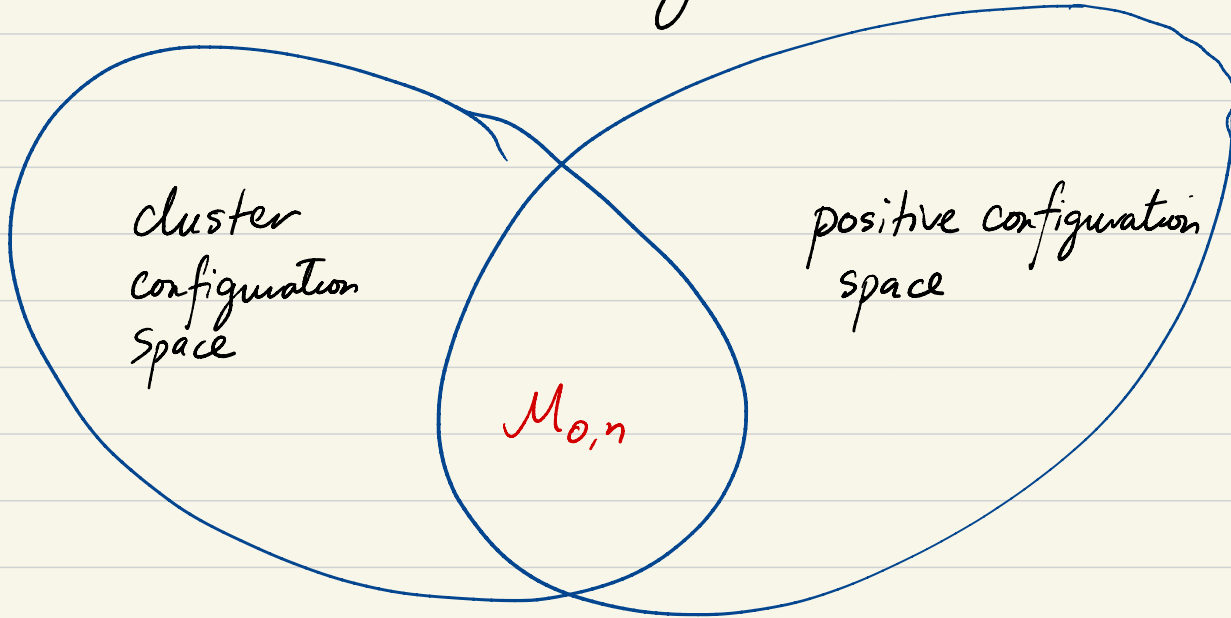 cluster
configuration
space
positive configuration
space
M0,n